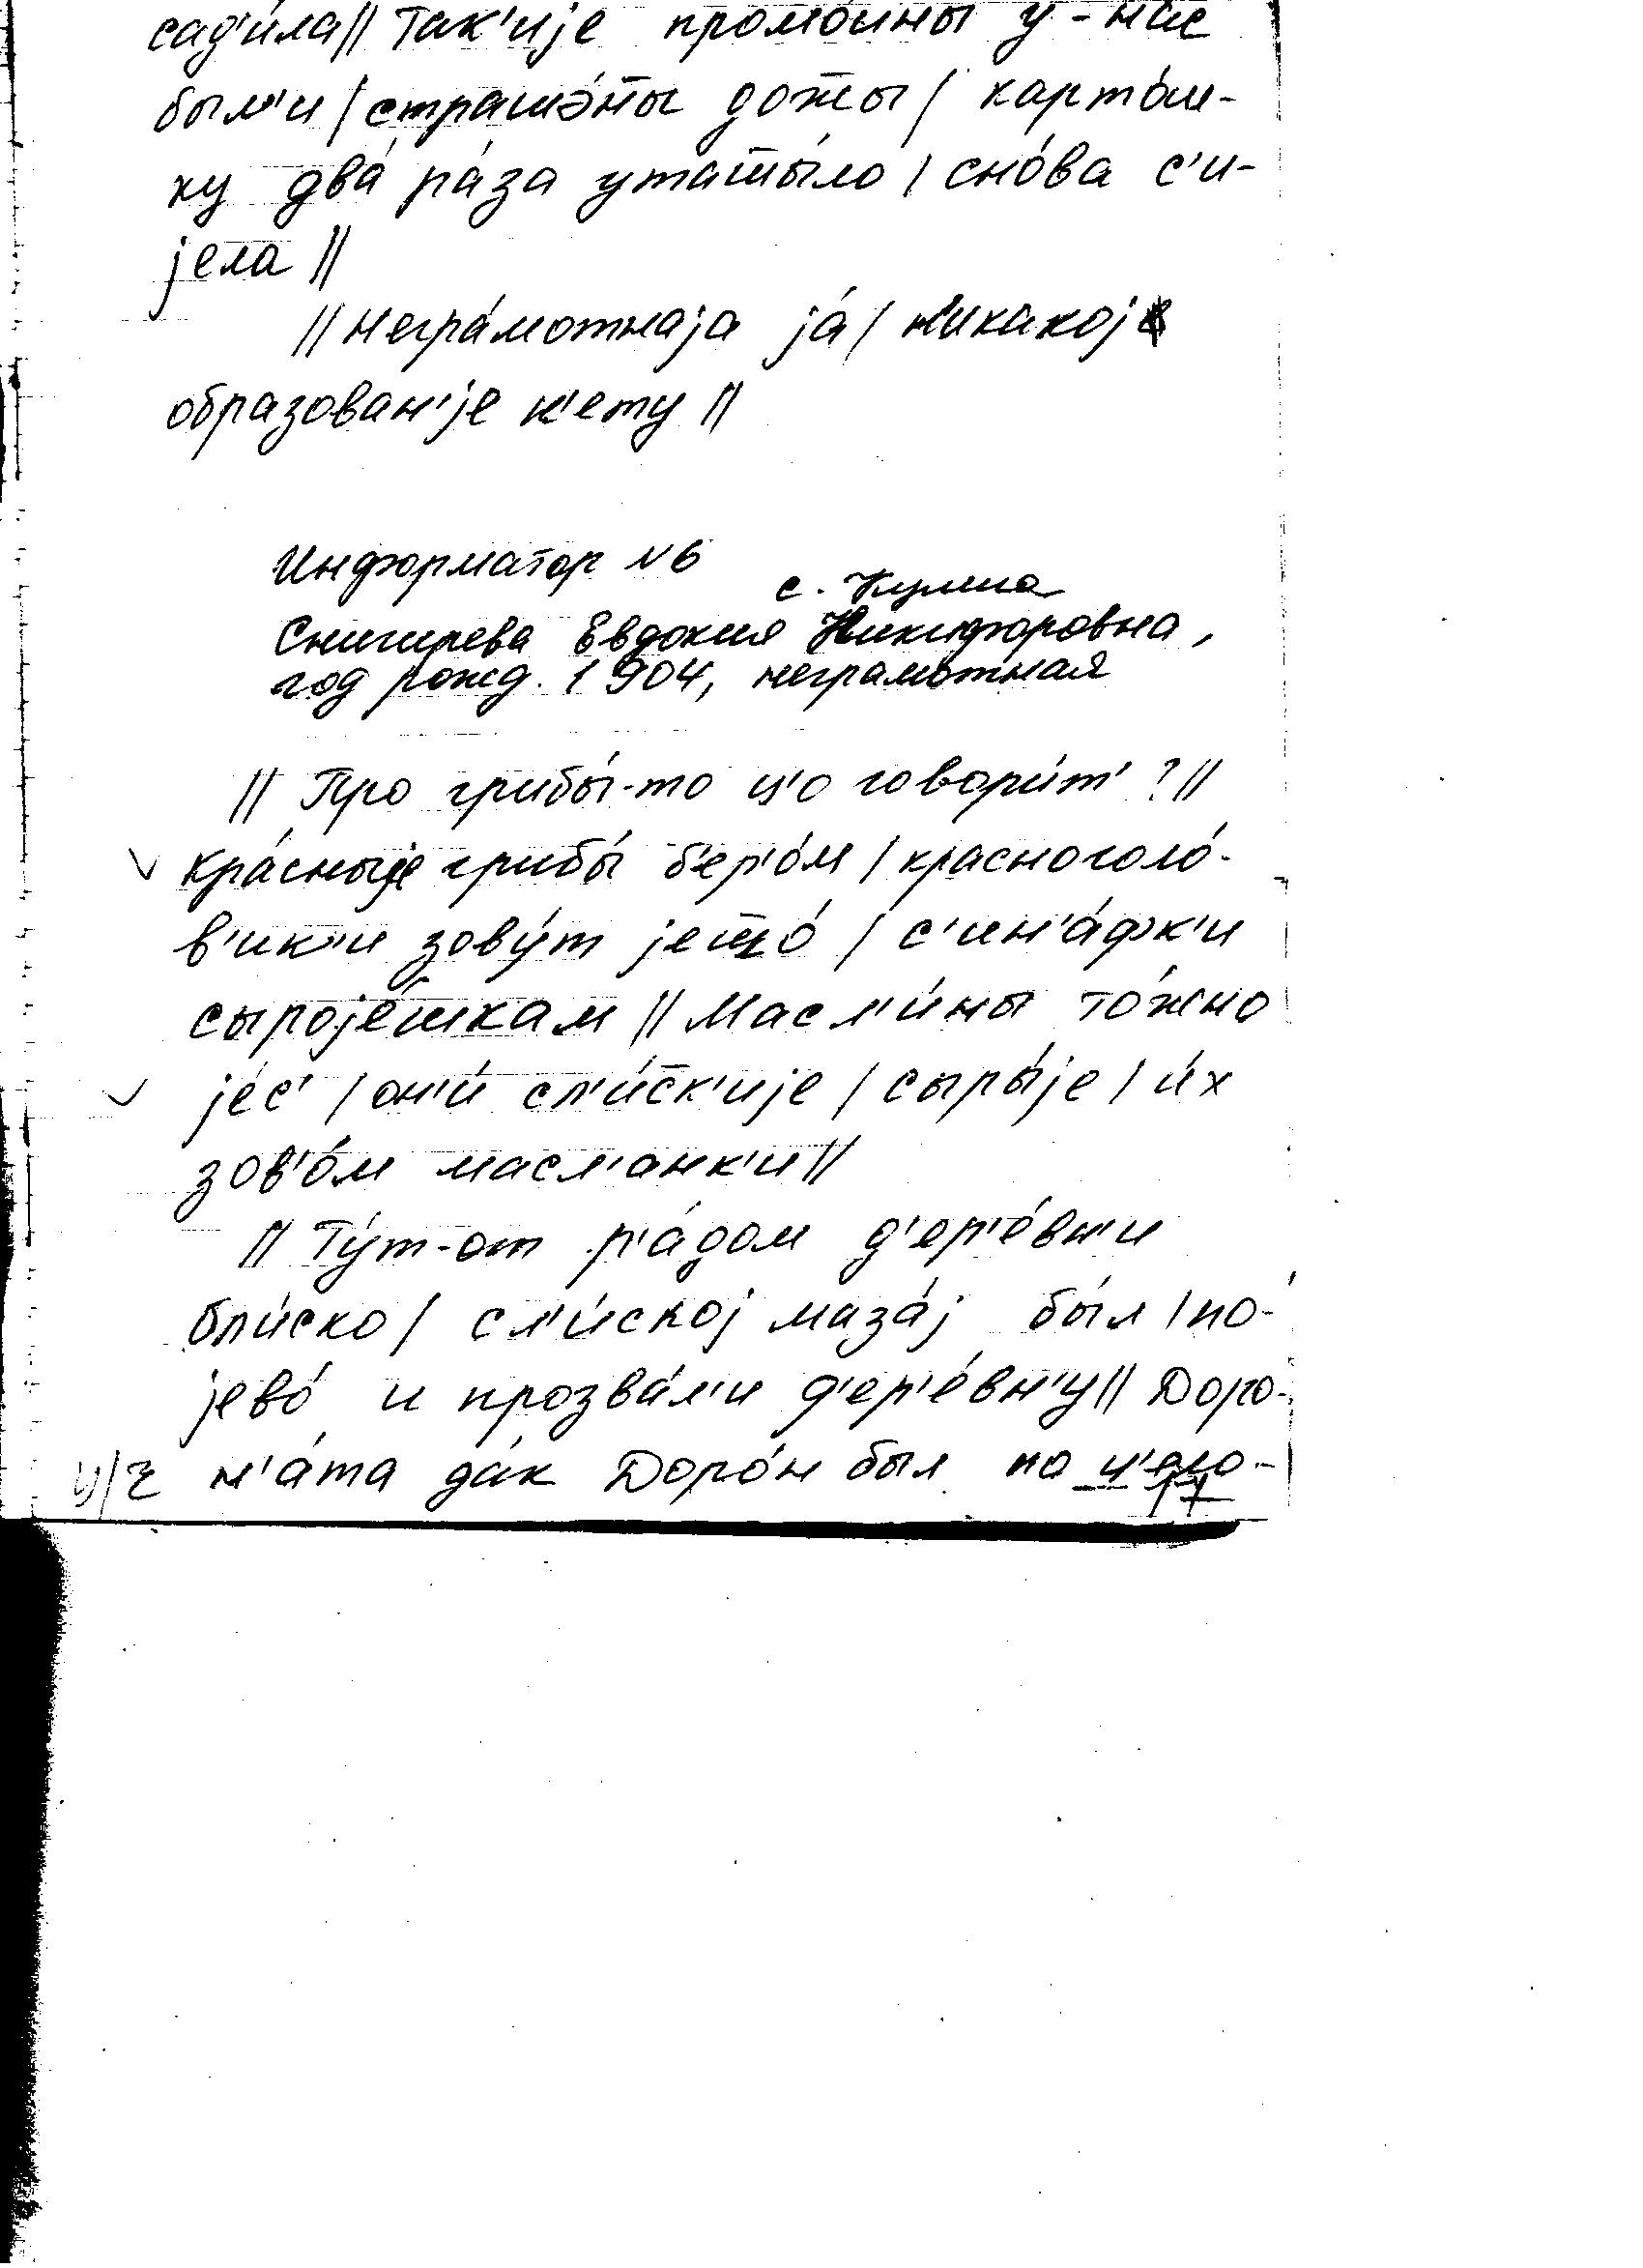 сад'и́ла || Так'иjе промо́ины у-нас
был'и / страшэ́н̄ы дож̄ы / карто́ш-
ку два́ ра́за уташ̄ы́ло / сно́ва с'и-
jела ||
|| Негра́мотнаjа jа́ / никакоj
образован'jе н'ету ||
Информатор №6
с. Кулига
Снигирева Евдокия Никифоровна,
год рожд. 1904, неграмотная
|| Про грибы́-то ц'о говори́т' ? ||
кра́сныjе грибы́ б'ер'о́м / красноголо́-
в'ик'и зову́т jешо́ / с'ин'а́фк'и
сыроjе́шкам || Масл'и́ны то́жно
jе́с' / он'и́ сл'и́ск'иjе / сыры́jе / и́х
зов'о́м масл'анк'и ||
|| Ту́т-от р'а́дом д'ер'е́вн'и
бли́ско / сл'и́скоj маза́j бы́л / по-
jево́ и прозва́л'и д'ер'е́вн'у || Доро-
ц/ч н'а́та да́к Доро́н был по
17